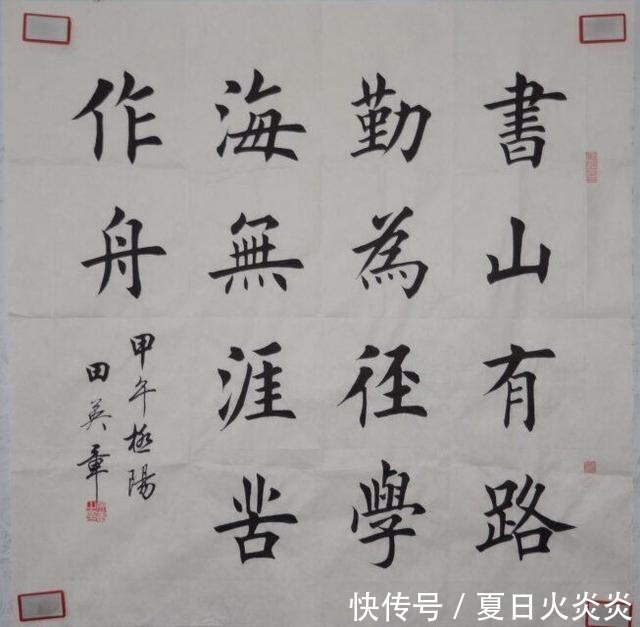 書山有路
勤為徑學
海無涯苦
作舟
甲午極陽
田英章
快传号 / 夏日火炎炎